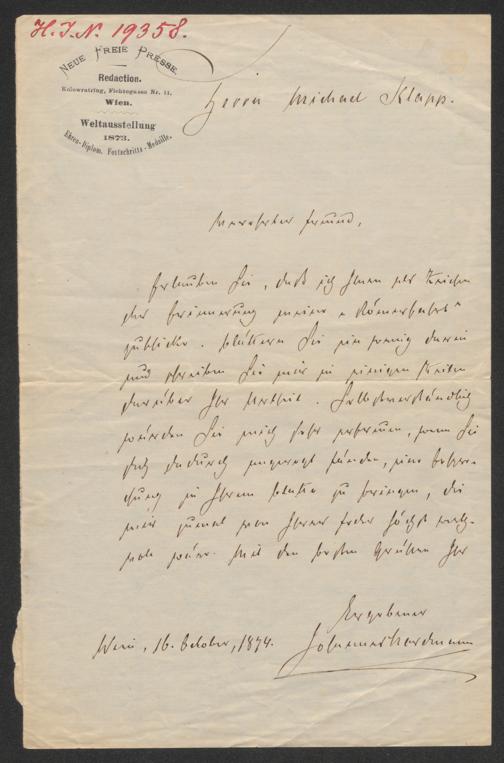 H. I. N. 19358.
NEUE FREIE PRESSE.
Redaction.
Kolowratring, Fichtegasse Nr. 11,
Wien.
Weltausstellung
1873.
Ehren-Diplom. Fortschritts-Medaille.
Herrn Michael Klapp.
Verehrter Freund,
Erlauben Sie, daß ich Ihnen als Zeichen
der Erinnerung meine „Römerfahrt"
zuschicke. Blättern Sie ein wenig darin
und schreiben Sie mir in einigen Zeilen
darüber Ihr Urtheil. Selbstverständlich
würden Sie mich sehr erfreuen, wenn Sie
sich dadurch angeregt fänden, eine Bespre-
chung in Ihrem Blatte zu bringen, die
mir zumal von Ihrer Feder höchst werth-
voll wäre. Mit den besten Grüßen Ihr
Ergebener
Wien, 16. October, 1874.
Johannes Nordmann